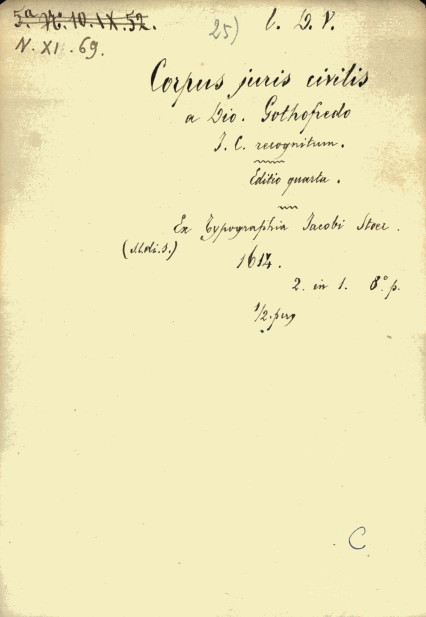 5.a N. 10. IX. 52.
25)
l. D. V.
N. XI. 69.
Corpus juris civilis
a Dio. Gothofredo
J. C. recognitum.
Editio quarta.
Ex Typographia Jacobi Stoer.
(M.di.S.)
1614.
2. in 1. 8° p.
1/2. perg
C